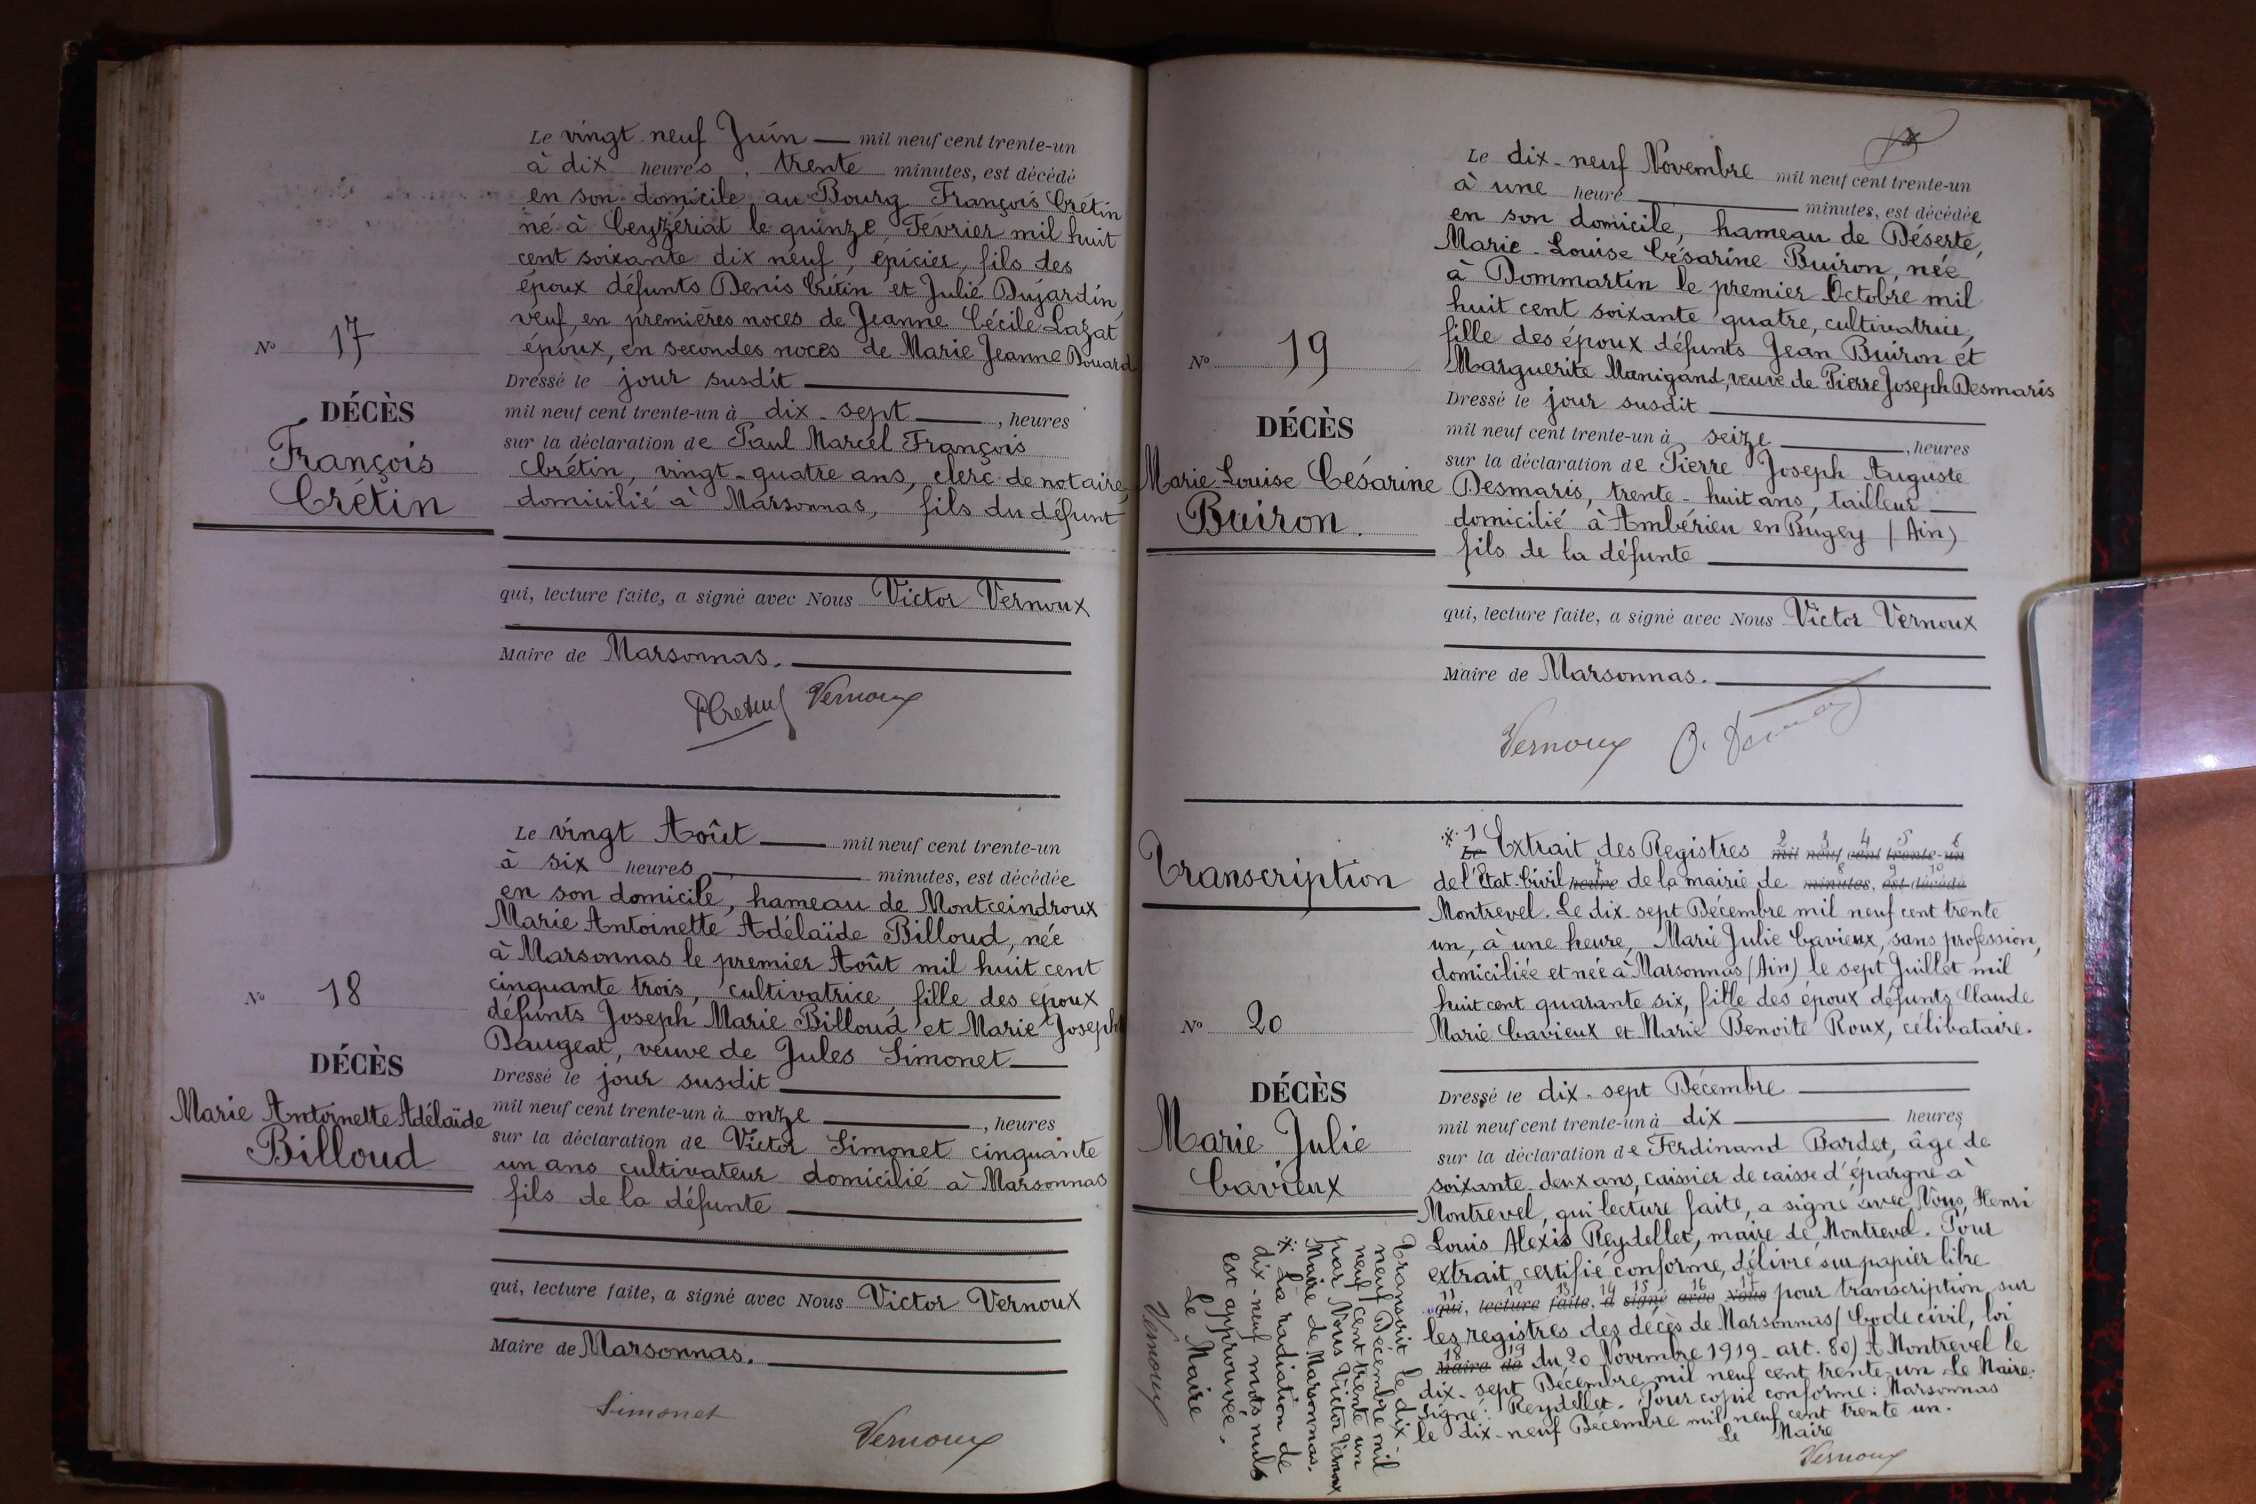 Le vingt neuf Juin mil neuf cent trente-un
à dix heures, trente minutes, est décédé
en son domicile au Bourg François Crétin
né à Ceyzériat le quinze Février mil huit
cent soixante dix neuf, épicier, fils des
époux défunts Denis Crétin et Julie Dujardin,
veuf en premières noces de Jeanne Cécile Lazat
époux, en secondes noces de Marie Jeanne Douard
Nº 17
DÉCÈS
François
Crétin
Dressé le jour susdit
mil neuf cent trente-un à dix-sept, heures
sur la déclaration de Paul Marcel François
Crétin, vingt-quatre ans, clerc de notaire,
domicilié à Marsonnas, fils du défunt
qui, lecture faite, a signé avec Nous Victor Vernoux
Maire de Marsonnas.
PCretin Vernoux
Le vingt Août mil neuf cent trente-un
à six heures minutes, est décédée
en son domicile, hameau de Montceindroux
Marie Antoinette Adélaïde Billoud, née
à Marsonnas le premier Août mil huit cent
cinquante trois, cultivatrice, fille des époux
défunts Joseph Marie Billoud et Marie Joseph
Daugeat, veuve de Jules Simonet
Nº 18
DÉCÈS
Marie Antoinette Adélaïde
Billoud
Dressé le jour susdit
mil neuf cent trente-un à onze, heures
sur la déclaration de Victor Simonet cinquante
un ans cultivateur domicilié à Marsonnas
fils de la défunte
qui, lecture faite, a signé avec Nous Victor Vernoux
Maire de Marsonnas.
Simonet
Vernoux
Le dix-neuf Novembre mil neuf cent trente-un
à une heure minutes, est décédée
en son domicile, hameau de Déserte,
Marie-Louise Césarine Buiron, née
à Dommartin le premier Octobre mil
huit cent soixante quatre, cultivatrice,
fille des époux défunts Jean Buiron et
Marguerite Manigand, veuve de Pierre Joseph Desmaris
Nº 19
DÉCÈS
Marie Louise Césarine
Buiron.
Dressé le jour susdit
mil neuf cent trente-un à seize, heures
sur la déclaration de Pierre Joseph Auguste
Desmaris, trente-huit ans, tailleur
domicilié à Ambérieu en Bugey (Ain)
fils de la défunte
qui, lecture faite, a signé avec Nous Victor Vernoux
Maire de Marsonnas.
Vernoux
Transcription
1 2 3 4 5 6
Le Extrait des Registres mil neuf cent trente-un
7 8 9 10
de l'Etat-Civil heure de la mairie de minutes, est décédé
Montrevel. Le dix-sept Décembre mil neuf cent trente
un, à une heure, Marie Julie Cavieux, sans profession,
domiciliée et née à Marsonnas (Ain) le sept Juillet mil
huit cent quarante six, fille des époux défunts Claude
Marie Cavieux et Marie Benoite Roux, célibataire.
Nº 20
DÉCÈS
Marie Julie
Cavieux
Dressé le dix-sept Décembre
mil neuf cent trente-un à dix heures
sur la déclaration de Ferdinand Bardet, âgé de
soixante-deux ans, caissier de caisse d'épargne à
Montrevel, qui lecture faite, a signé avec Nous, Henri
Louis Alexis Reydellet, maire de Montrevel. Pour
extrait certifié conforme, délivré sur papier libre
11 12 13 14 15 16 17
qui, lecture faite, a signé avec Nous pour transcription sur
les registres des décès de Marsonnas (Code civil, loi
18 19
Maire de du 20 Novembre 1919-art. 80) A Montrevel le
dix-sept Décembre mil neuf cent trente-un Le Maire:
Signé: Reydellet. Pour copie conforme: Marsonnas
le dix-neuf Décembre mil neuf cent trente un.
Le Maire
Vernoux
Transcrit le dix-
neuf Décembre mil
neuf cent trente un
par Nous Victor Vernoux
Maire de Marsonnas.
* La radiation de
dix-neuf mots nuls
est approuvée.
Le Maire
Vernoux